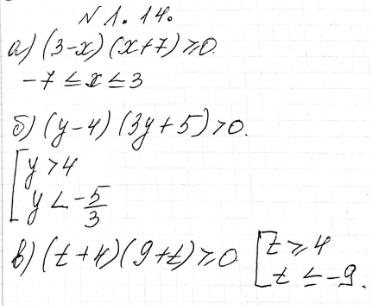 N 1.14.
а) (3-x)(x+7)≥0.
-7 ≤ x ≤ 3
б) (y-4)(3y+5)>0.
[y>4
[y<-5/3
в) (t+4)(9+t)≥0 [t≥4
[t≤-9.